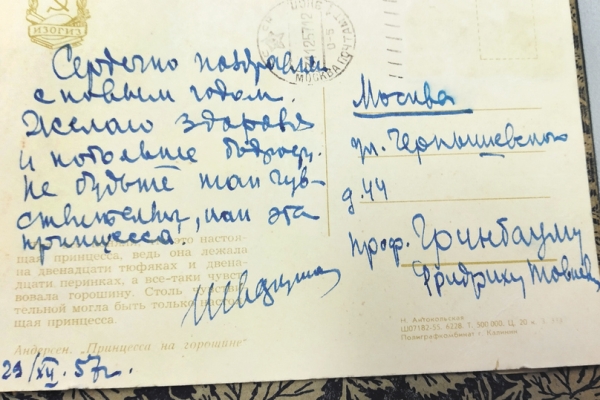 ИЗОГИЗ
МОСКВА ПОЧТАМТ
Сердечно поздравляю
с новым годом.
Желаю здоровья
и побольше бодрости.
Не будьте так чув-
ствительны, как эта
принцесса.
это настоя-
щая принцесса, ведь она лежала
на двенадцати тюфяках и двена-
дцати перинках, а все-таки чувст-
вовала горошину. Столь чувстви-
тельной могла быть только настоя-
щая принцесса.
Андерсен. „Принцесса на горошине"
29/XII. 57 г.
Москва
ул. Чернышевского
д. 44
проф. Гринбауму
Фридриху
Н. Антокольская
Ш07182-55. 6228. Т. 500 000. Ц. 20 к.
Полиграфкомбинат г. Калинин